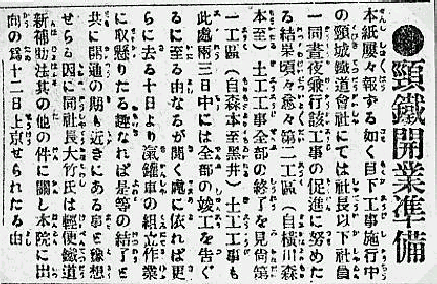 ●頸鐵開業準備
本紙屢々報ずる如く目下工事施行中
の頸城鐵道會社にては社長以下社員
一同晝夜兼行該工事の促進に努めた
る結果頃々愈々第二工區（自橫川森
本至）土工工事全部の終了を見尚第
一工區（自森本至黑井）土工工事も
此處兩三日中には全部の竣工を告ぐ
るに至る由なるが聞く處に依れば更
らに去る十日より滊鑵車の組立作業
に取懸りたる趣なれば是等の結了と
共に開通の期も近きにある事と豫想
せらる因に同社長大竹氏は輕便鐵道
新補助法其の他の件に關し本院に出
向の爲十二日上京せられたる由